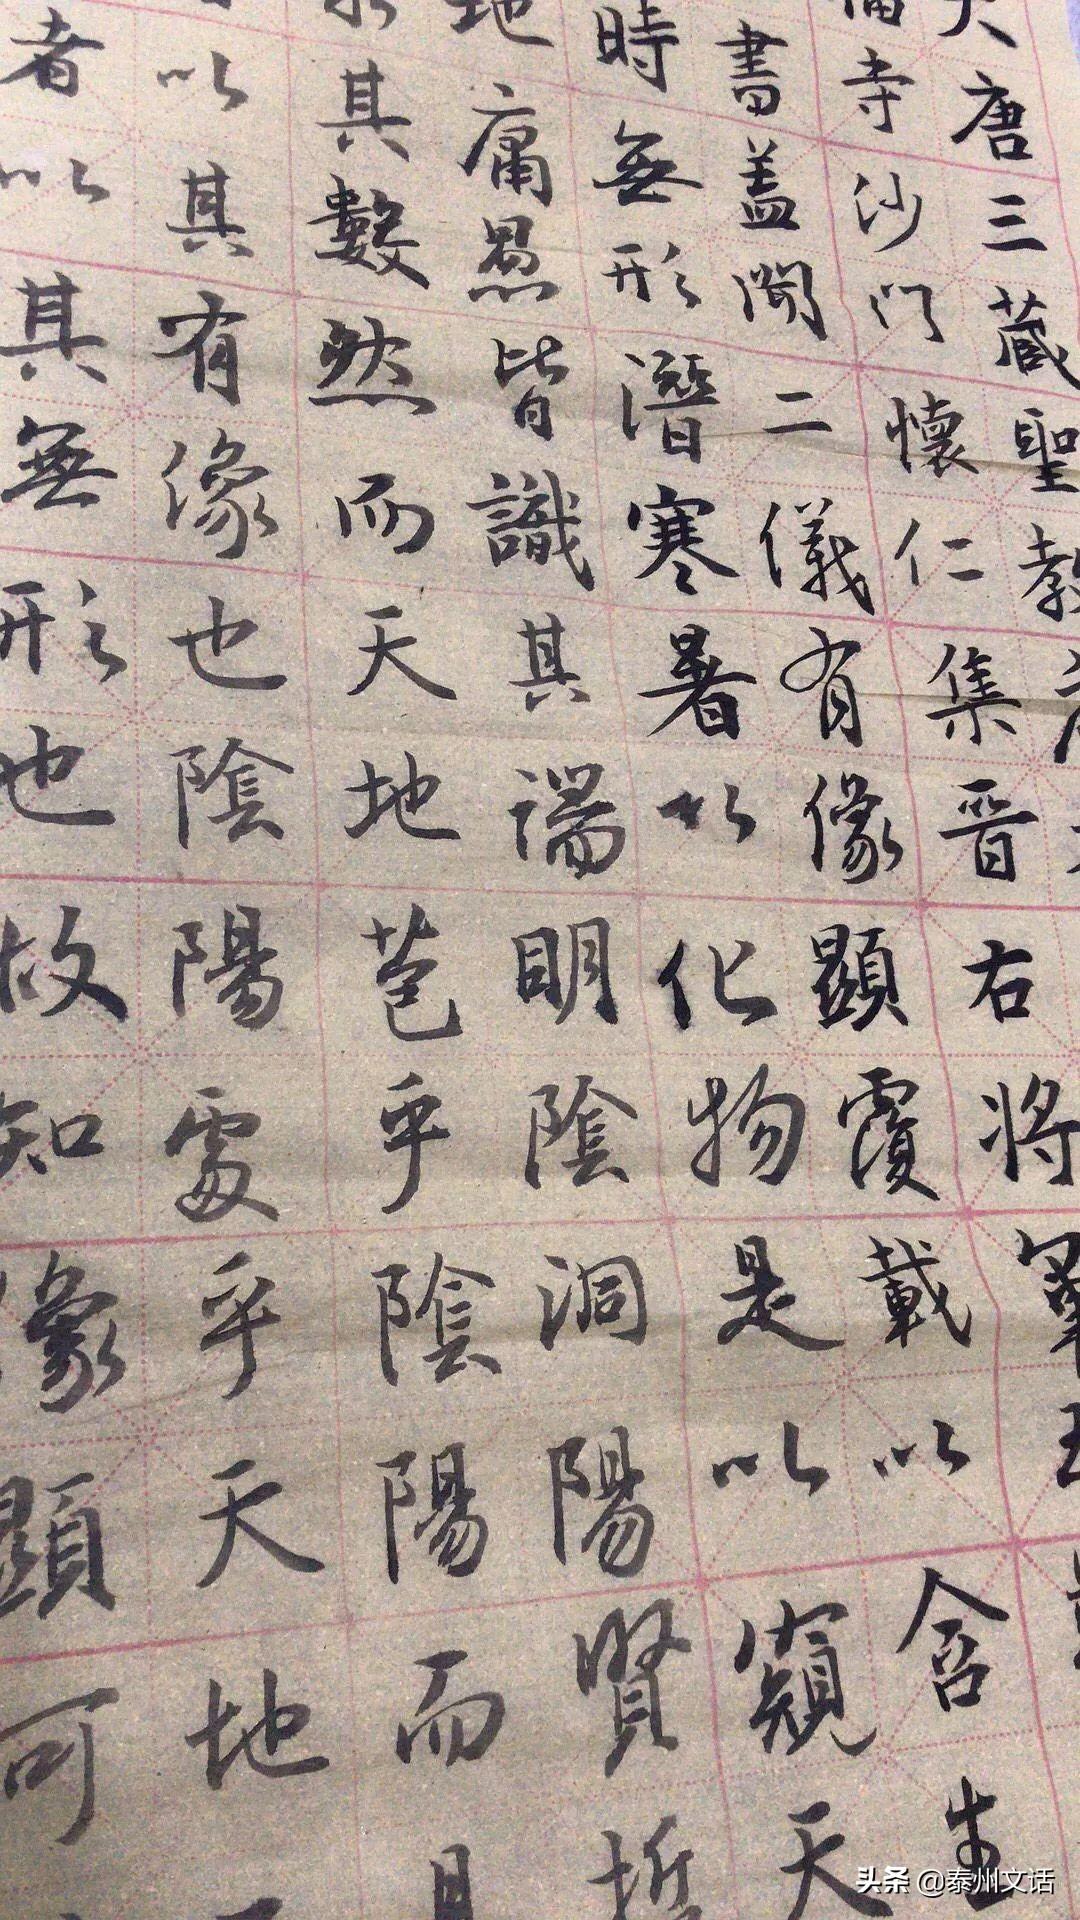 大唐三藏聖教
福寺沙門懷仁集晉右將軍
書盖聞二儀有像顯覆載以含生
時無形潛寒暑以化物是以窺天
地庸愚皆識其端明陰洞陽賢哲
其數然而天地苞乎陰陽而
以其有像也陰陽處乎天地
者以其無形也故知像顯可
头条 @泰州文话